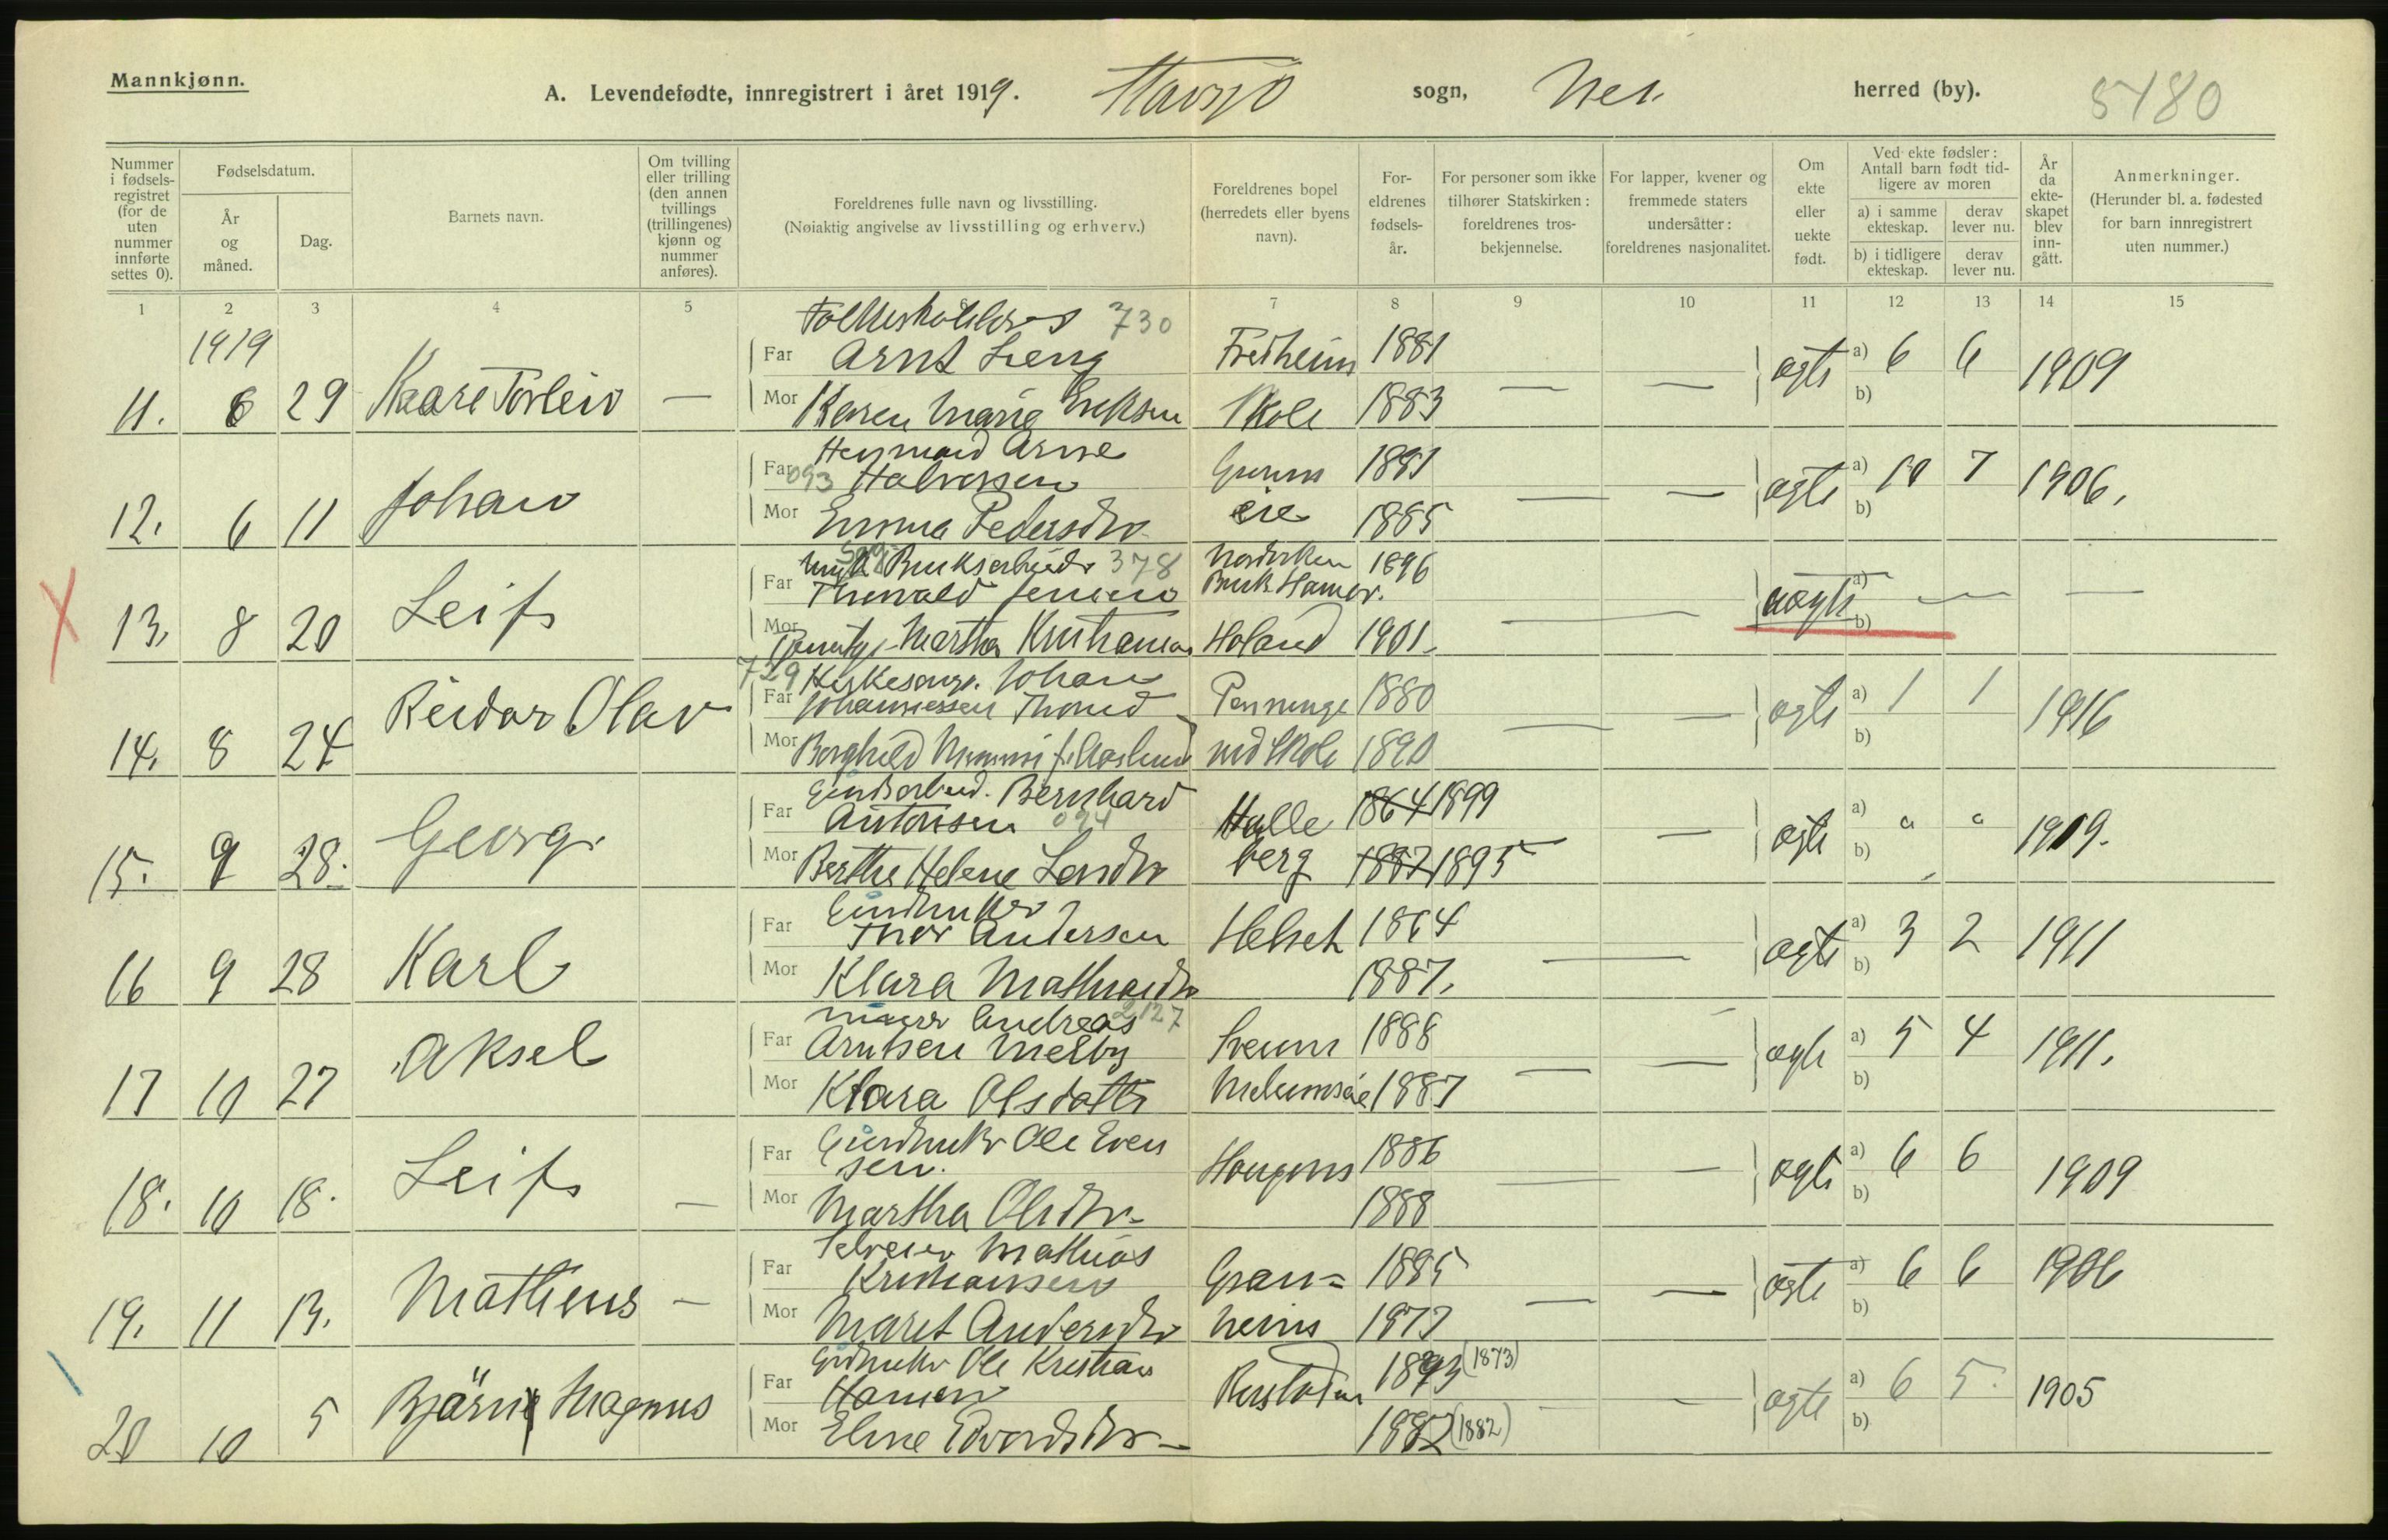 Mannkjønn.
A. Levendefødte, innregistrert i året 1919. Stavsjø sogn, Nes. herred (by). 5180
Nummer i fødselsregistret (for de uten nummer innførte settes 0).
Fødselsdatum.
År og måned.
Dag.
Barnets navn.
Om tvilling eller trilling (den annen tvillings (trillingenes) kjønn og nummer anføres).
Foreldrenes fulle navn og livsstilling.
(Nøiaktig angivelse av livsstilling og erhverv.)
Foreldrenes bopel (herredets eller byens navn).
Foreldrenes fødselsår.
For personer som ikke tilhører Statskirken: foreldrenes trosbekjennelse.
For lapper, kvener og fremmede staters undersåtter: foreldrenes nasjonalitet.
Om ekte eller uekte født.
Ved ekte fødsler: Antall barn født tidligere av moren
a) i samme ekteskap. derav lever nu.
b) i tidligere ekteskap. derav lever nu.
År da ekteskapet blev inngått.
Anmerkninger.
(Herunder bl. a. fødested for barn innregistrert uten nummer.)
1 2 3 4 5 6 7 8 9 10 11 12 13 14 15
1919
730
Far Arnt Lieng Fredheim 1881
11. 6 29 Kaare Torleiv — Mor Karen Marie Eriksen Skole 1883 — — ægte a) 6 6 b) 1909
Arne
Far 093 Halvorsen 1881
12. 6 11 Johan Mor Emma Pedersdtr eie 1885 — — ægte a) 10 7 b) 1906.
Bruksarbeider 378 1896
Far Thorvald Jensen Bruk Hamar.
13. 8 20 Leif Mor Martha Kristiansen 1901. — — uægte a) b) — —
729 Johan
Far Johannessen 1880
14. 8 24 Reidar Olav Mor Borghild ved Skole 1890 — — ægte a) 1 1 b) 1916
Bernhard
Far Antonsen 094 Halle 1864 1899
15. 9 28. Georg. Mor Berthe Helene berg 1887 1895 — — ægte a) " " b) 1919.
Gårdbruker
Far Thor Andersen Helset 1864
16 9 28 Karl Mor Klara 1887. — — ægte a) 3 2 b) 1911
Murer Andreas 2127
Far Arntsen Melby Sveum 1888
17 10 27 Aksel Mor Klara Olsdatter 1887 — — ægte a) 5 4 b) 1911.
Gårdbruker Ole Even
Far sen. 1886
18. 10 18. Leif — Mor Martha Olsdtr. 1888 — — ægte a) 6 6 b) 1909
Selveier Mathias
Far Kristiansen Gran= 1885
19. 11 13. Matheus — Mor Maret Andersdtr heim 1877 — — ægte a) 6 6 b) 1906
Gårdbruker Ole Kristian
Far Hansen 1893 (1873)
20 10 5 Bjärne Magnus Mor Eline Edvardsdtr 1882 (1882) — — ægte a) 6 5. b) 1905